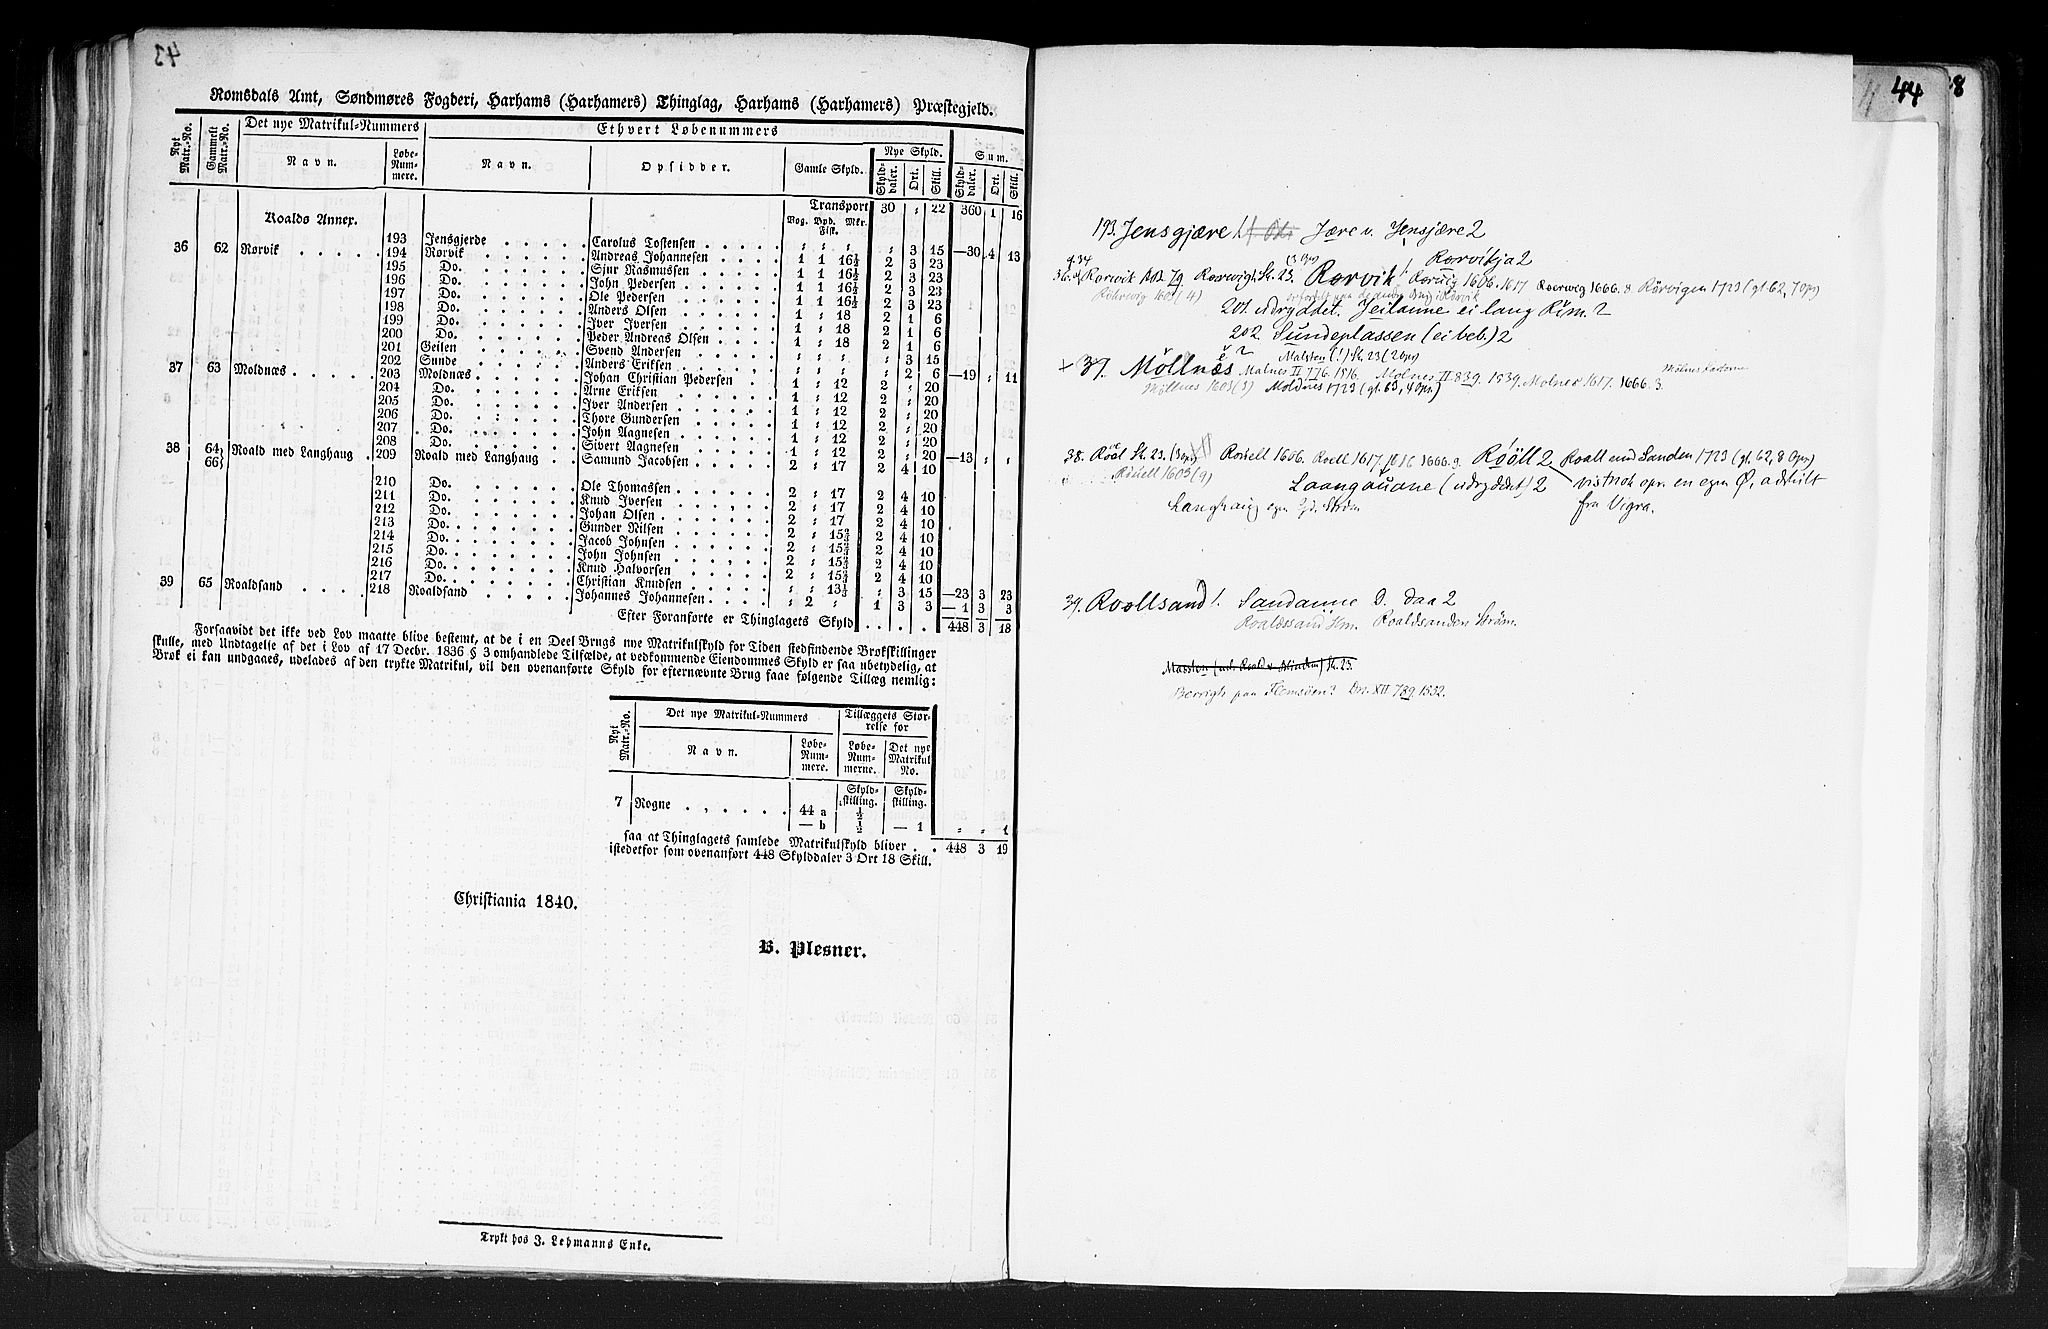 Romsdals Amt, Søndmøres Fogderi, Harhams (Harhamers) Thinglag, Harhams (Harhamers) Præstegjeld.
Nyt Matr.-No. Gammelt Matr.-No. Det nye Matrikul-Nummers Ethvert Løbenummers
Navn. Løbe-Num-mere. Navn. Opsidder. Gamle Skyld. Nye Skyld. Sum.
Skyld-daler. Ort. Skill. Skyld-daler. Ort. Skill.
Transport 30 „ 22 360 1 16
Roalds Annex. Vog. Bpd. Fisk. Mkr.
193 Jensgjerde Carolus Tostensen „ „ „ „ 3 15
36 62 Rørvik 194 Rørvik Andreas Johannesen 1 1 16½ 2 3 23 —30 4 13
195 Do. Sjur Rasmussen 1 1 16½ 2 3 23
196 Do. John Pedersen 1 1 16½ 2 3 23
197 Do. Ole Pedersen 1 1 16½ 2 3 23
198 Do. Anders Olsen 1 „ 18 2 1 6
199 Do. Iver Iversen 1 „ 18 2 1 6
200 Do. Peder Andreas Olsen 1 „ 18 2 1 6
201 Geilen Svend Andersen „ „ „ „ 3 15
202 Sunde Anders Eriksen „ „ „ „ 2 6
37 63 Moldnæs 203 Moldnæs Johan Christian Pedersen 1 „ 12 2 „ 20 —19 „ 11
204 Do. Arne Eriksen 1 „ 12 2 „ 20
205 Do. Iver Andersen 1 „ 12 2 „ 20
206 Do. Thore Gundersen 1 „ 12 2 „ 20
207 Do. John Aagnesen 1 „ 12 2 „ 20
208 Do. Sivert Aagnesen 1 „ 12 2 „ 20
38 64 66} Roald med Langhaug 209 Roald med Langhaug Samund Jacobsen 2 „ 17 2 4 10 —13 „ „
210 Do. Ole Thomassen 2 „ 17 2 4 10
211 Do. Knud Iversen 2 „ 17 2 4 10
212 Do. Johan Olsen 2 „ 17 2 4 10
213 Do. Gunder Nilsen 2 „ 15⅔ 2 4 10
214 Do. Jacob Johnsen 2 „ 15⅔ 2 4 10
215 Do. John Johnsen 2 „ 15⅔ 2 4 10
216 Do. Knud Halvorsen 2 „ 15⅔ 2 4 10
217 Do. Christian Knudsen „ „ 13⅓ „ 3 15 —23 3 23
39 65 Roaldsand 218 Roaldsand Johannes Johannesen „ 2 „ 1 3 3 — 1 3 3
Efter Foranførte er Thinglagets Skyld 448 3 18
Forsaavidt det ikke ved Lov maatte blive bestemt, at de i en Deel Brugs nye Matrikulskyld for Tiden stedfindende Brøkskillinger
skulle, med Undtagelse af det i Lov af 17 Decbr. 1836 § 3 omhandlede Tilfælde, at vedkommende Eiendommes Skyld er saa ubetydelig, at
Brøk ei kan undgaaes, udelades af den trykte Matrikul, vil den ovenanførte Skyld for efternævnte Brug faae følgende Tillæg nemlig:
Nyt Matr.-No. Det nye Matrikul-Nummers Tillæggets Størrelse for
Navn. Løbe-Num-mere. Løbe-Num-merne. Det nye Matrikul No.
Skyld-skilling. Skyld-skilling.
7 Rogne 44 a ½
— b ½ — 1 „ „ 1
saa at Thinglagets samlede Matrikulskyld bliver 448 3 19
istedetfor som ovenanført 448 Skylddaler 3 Ort 18 Skill.
Christiania 1840.
B. Plesner.
Trykt hos J. Lehmanns Enke.
43
44
8
193. Jensgjære! Jære v. Jensjære 2
Rorvikja 2
36. Rorvik Rorwigh St. 23. Rorvik! Roruig 1606. 1617 Roerweg 1666. 8 Rörvigen 1723 (gl. 62, 7 opr)
Röhrwig 1603 (4)
201. udryddet. Jeilanne ei lang Rim. 2
202. Sundeplassen (ei beb.) 2
Malsten (!) St. 23 (2 opr)
+ 37. Möllnæs Malnes II 776. 1516. Molnes II 839. 1539. Molnes 1617. 1666. 3.
Möllnes 1603 (3) Moldnes 1723 (gl. 63, 4 opr)
38. Röøl St. 23. (3 opr) Roiell 1606. Roell 1617. 1616 1666. 9. Röøll 2 Roall med Sanden 1723 (gl. 62, 8 opr)
Röuell 1603 (9) Laangaūane (udryddet) 2 vistnok opr. en egen Ø, adskilt
Langhaug egen Gd. Strøm fra Vigra.
39. Roollsand! Sandanne D. daa 2
Roaldssand Hm. Roaldsanden Strøm.
Masston (ved Roald v. Blindm) St. 23.
Berrigh paa Flemsöen? Dn. XII 789 1532.